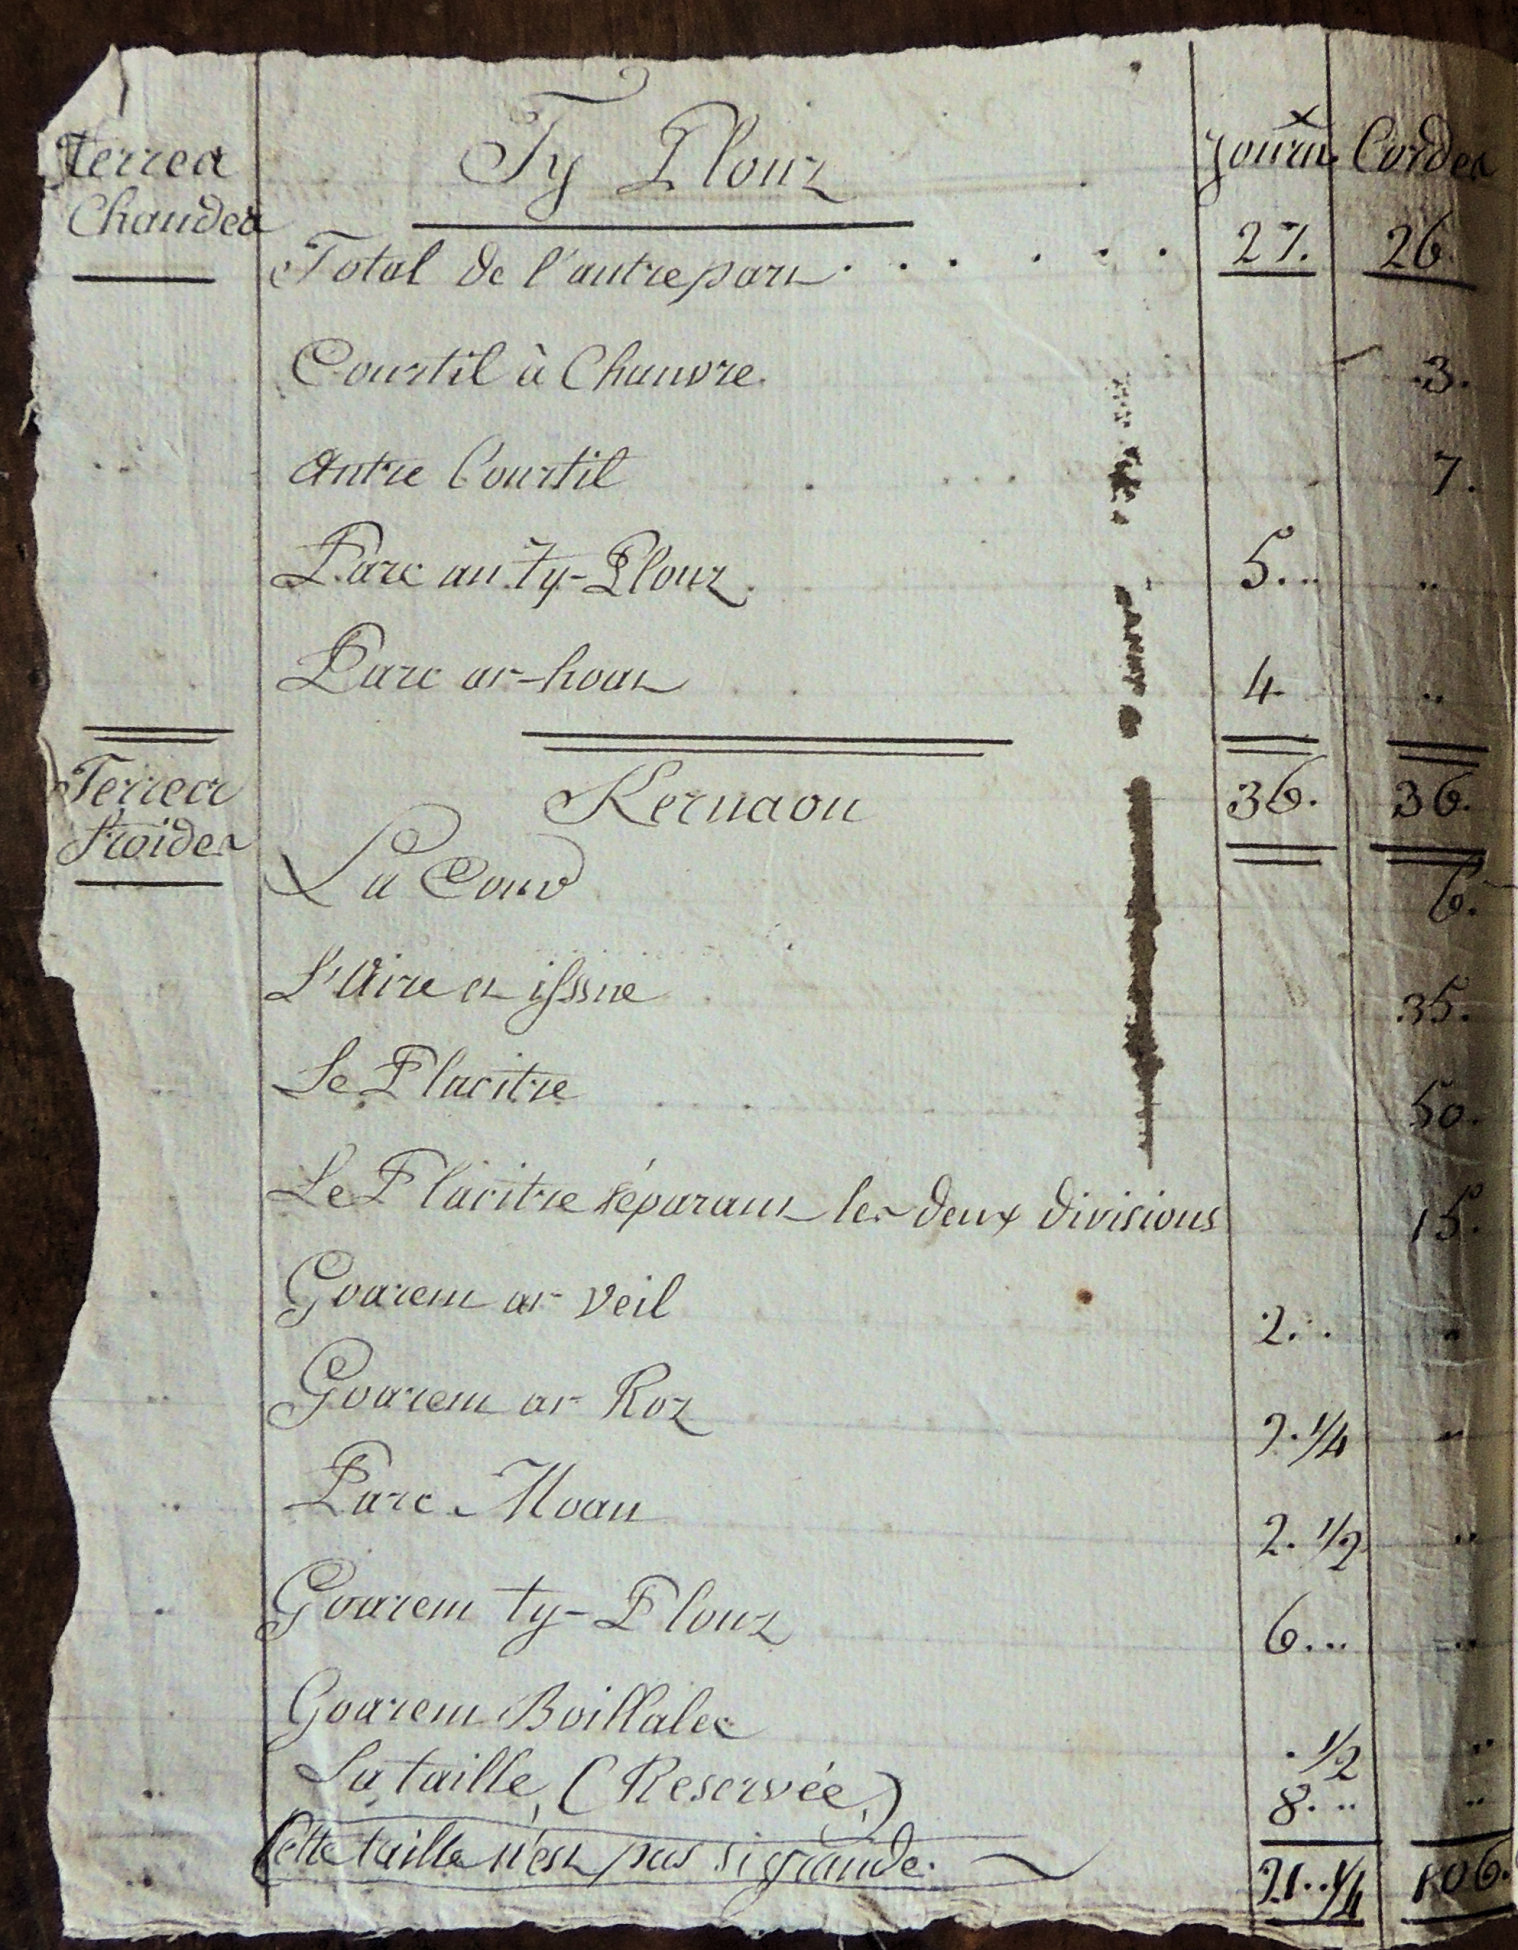 Terres Chaudes
Ty Plouz
Journx Cordes
Total de l'autre part . . . . . . 27. 26.
Courtil à Chanvre. 3.
Autre Courtil 7.
Parc an Ty-Plouz 5. .. ..
Parc ar-hoat 4 ..
36. 36.
Terres froides
Kernaou
La Cour 6.
L'Aire et issue 35.
Le Placitre 50.
Le Placitre séparant les deux divisions 15.
Goarem ar Veil 2. .. ..
Goarem ar Roz 2. 1/4 ..
Parc Moan 2. 1/2 ..
Goarem ty-Plouz 6. .. ..
Goarem Boillalec . 1/2 ..
La taille, (Reservée,) 8. .. ..
Cette taille n'est pas si grande.
21.. 1/4 106.